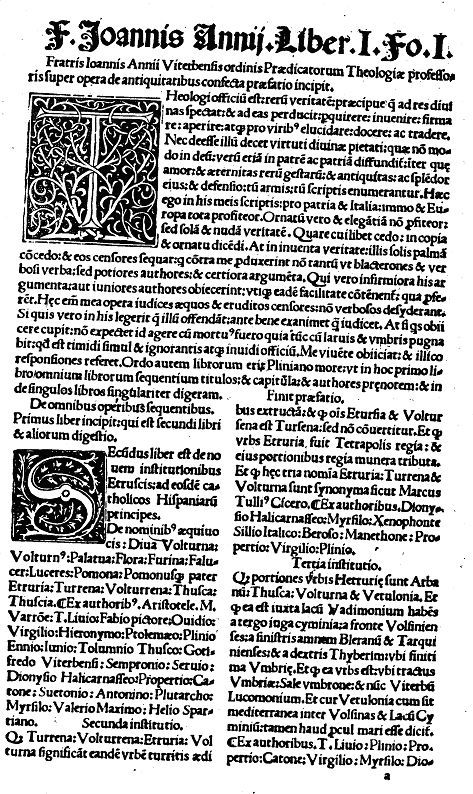 F. Joannis Annij. Liber. I. Fo. I.
Fratris Ioannis Annii Viterbensis ordinis Prædicatorum Theologiæ professo-
ris super opera de antiquitatibus confecta præfatio incipit.
THeologi officiū est: rerū veritatē: præcipue q̄ ad res diui
nas spectāt: & ad eas perducit: pquirere: inuenire: firma
re: aperire: atq; pro virib⁹ elucidare: docere: ac tradere.
Nec deesse illū decet virtuti diuinæ pietati: quæ nō mo-
do in deū: verū etiā in patrē ac patriā diffundit: iter quę
amor: & æternitas rerū gestarū: & antiquitas: ac splēdor
eius: & defensio: tū armis: tū scriptis enumerantur. Hæc
ego in his meis scriptis: pro patria & Italia: immo & Eu-
ropa tota profiteor. Ornatū vero & elegātiā nō pfiteor:
sed solā & nudā veritatē. Quare cuilibet cedo: in copia
& ornatu dicēdi. At in inuenta veritate: illis solis palmā
cōcedo: & eos censores sequar: q cōtra me pduxerint nō tantū vt blacterones & ver
bosi verba: sed potiores authores: & certiora argumēta. Qui vero infirmiora his ar
gumenta: aut iuniores authores obiecerint: vtiq; eadē facilitate cōtēnent: qua pfe-
rēt. Hęc em̄ mea opera iudices æquos & eruditos censores: nō verbosos desyderant.
Si quis vero in his legerit q̄ illū offendāt: ante bene examinet q̄ iudicet. At si qs obii
cere cupit: nō expectet id agere cū mortu⁹ fuero quia tūc cū laruis & vmbris pugna
bit: qd est timidi simul & ignorantis atq; inuidi officiū. Me viuēte obiiciat: & illico
responsiones referet. Ordo autem librorum erit Pliniano more: vt in hoc primo li-
bro: omnium librorum sequentium titulos: & capitula: & authores prenotem: & in
de singulos libros singulariter digeram. Finit præfatio.
De omnibus operibus sequentibus.
Primus liber incipit: qui est secundi libri
& aliorum digestio.
SEcūdus liber est de no
uem institutionibus
Etruscis: ad eosdē ca-
tholicos Hispaniarū
principes.
De nominib⁹ æquiuo
cis: Diua Volturna:
Volturn⁹: Palatua: Flora: Furina: Falu-
cer: Luceres: Pomona: Pomonusq; pater
Etruria: Turrena: Volturrena: Thusca:
Thuscia. ¶Ex authorib⁹. Aristotele. M.
Varrōe: T. Liuio: Fabio pictore: Ouidio:
Virgilio: Hieronymo: Ptolemæo: Plinio
Ennio: Iunio: Tolumnio Thusco: Goti-
fredo Viterbensi: Sempronio: Seruio:
Dionysio Halicarnasseo: Propertio: Ca-
tone: Suetonio: Antonino: Plutarcho:
Myrsilo: Valerio Maximo: Helio Spar-
tiano. Secunda institutio.
Q; Turrena: Volturrena: Etruria: Vol
turna significāt eandē vrbē turritis ædi
bus extructā: & q; oīs Etursia & Voltur
sena est Tursena: sed nō cōuertitur. Et q;
vrbs Etruria, fuit Tetrapolis regia: &
eius portionibus regia munera tributa.
Et q; hęc tria noīa Etruria: Turrena &
Volturna sunt synonyma sicut Marcus
Tulli⁹ Cicero. ¶Ex authoribus, Diony-
sio Halicarnasseo: Myrsilo: Xenophonte
Sillio Italico: Beroso: Manethone: Pro-
pertio: Virgilio: Plinio.
Tertia institutio.
Q; portiones vrbis Hetrurię sunt Arba
nū: Thusca: Volturna & Vetulonia. Et
q; ea est iuxta lacū Vadimonium habēs
a tergo iuga cyminia: a fronte Volsinien
ses: a sinistris amnem Bleranū & Tarqui
nienses: & a dextris Thyberim: vbi finiti
ma Vmbrię. Et q; ea vrbs est: vbi tractus
Vmbriæ: Sale vmbrone: & nūc Viterbū
Lucomonium. Et cur Vetulonia cum sit
mediterranea inter Volsinas & Lacū Cy
miniū: tamen haud pcul mari esse dicit.
¶Ex authoribus. T. Liuio: Plinio: Pro-
pertio: Catone: Virgilio: Myrsilo: Dio
a